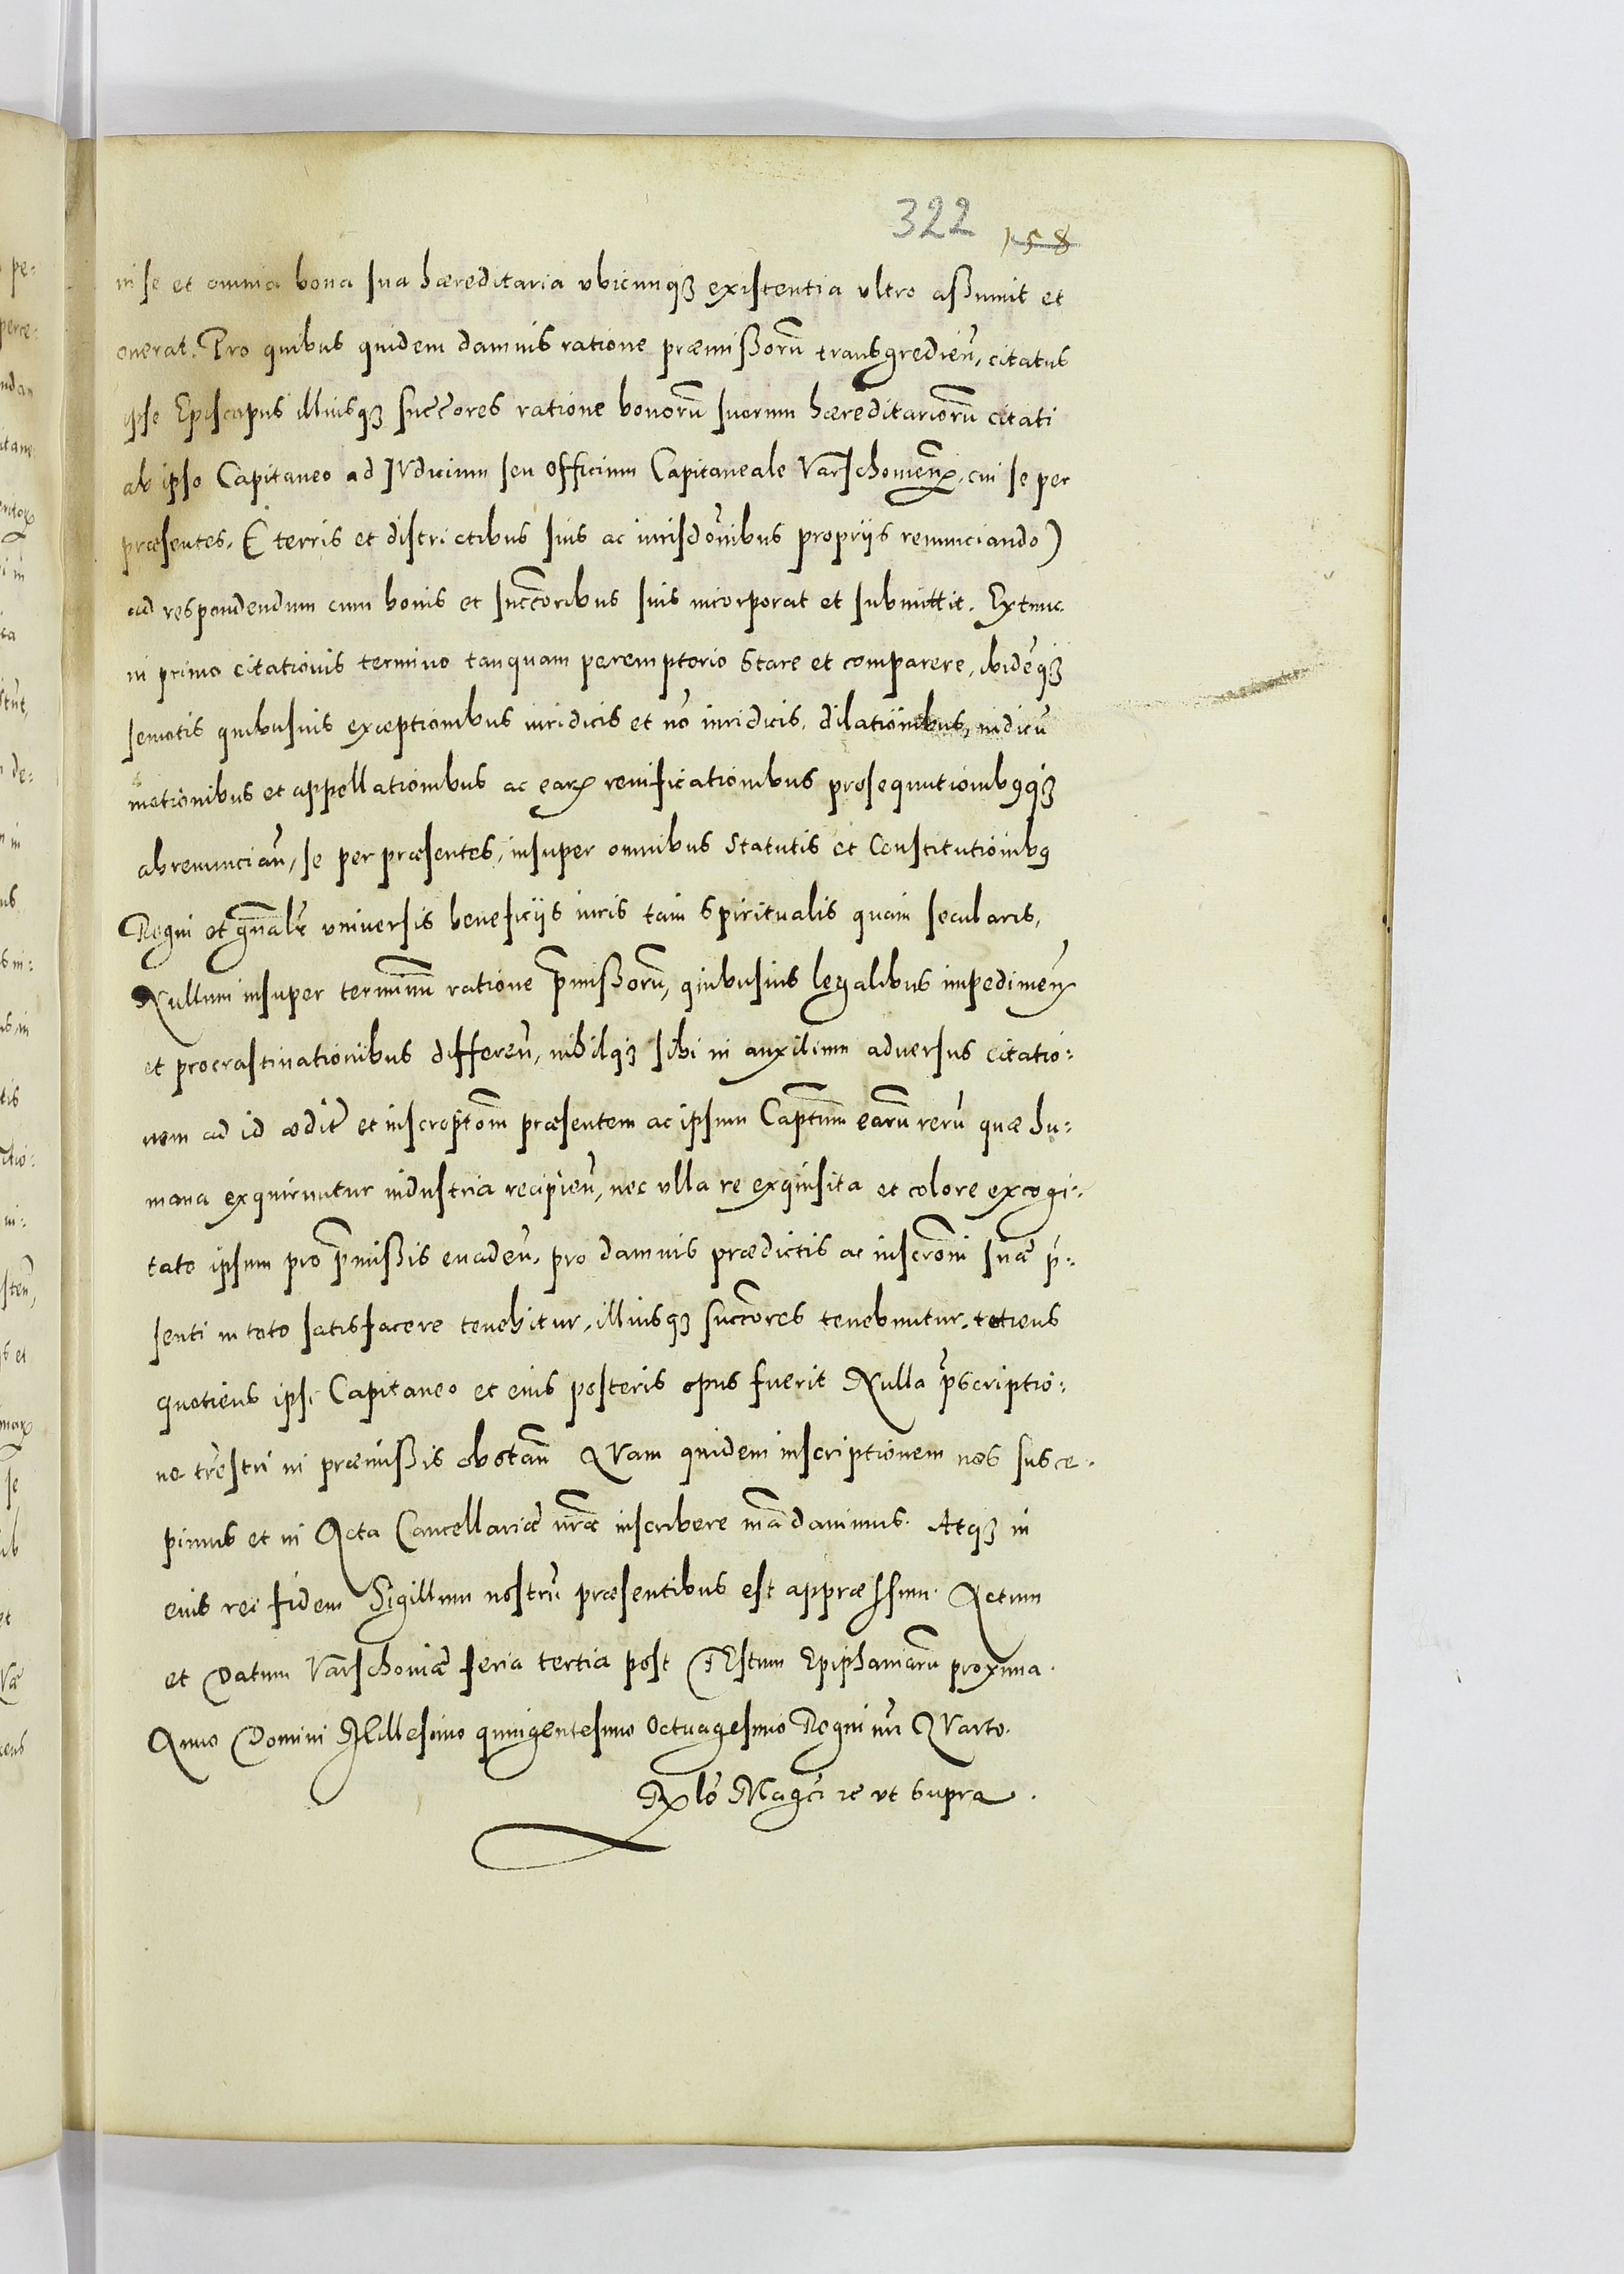 322 158
in se et omnia bona sua hæreditaria vbicunqꝫ existentia vltro aßumit et
onerat. Pro quibus quidem damnis ratione præmißorũ transgredieñ, citatus
ipse Episcopus illiusqꝫ succẽores ratione bonorũ suorum hæreditariorũ citati
ab ipso Capitaneo ad IVdicium seu officium Capitaneale Varschouieñ, cui se per
præsentes, (E terris et districtibus suis ac iurisdõnibus proprijs renunciando)
ad respondendum cum bonis et succẽoribus suis incorporat et submittit. Ex tunc
in primo citationis termino tanquam peremptorio stare et comparere, ibidẽqꝫ
semotis quibusuis exceptionibus iuridicis et nõ iuridicis, dilationibus, iudicũ
motionibus et appellationibus ac earꝝ reuificationibus prosequutionibꝰqꝫ
abrenuncians̃, se per præsentes, insuper omnibus Statutis et Constitutionibꝰ
Regni et gñalr̃ vniuersis beneficijs iuris tam spiritualis quam secularis,
Nullum insuper terminũ ratione p̃mißorũ, quibusuis legalibus impedimeñ
et procrastinationibus differeñ, nihilqꝫ sibi in auxilium aduersus citatio:
nem ad id ædit̃ et inscriptõm præsentem ac ipsum Capt̃um earũ rerũ quæ hu:
mana exquiruntur industria recipieñ, nec vlla re exquisita et colore excogi:
tato ipsum pro p̃mißis euadeñ, pro damnis prædictis ac inscrõni suæ p̃:
senti in toto satisfacere tenebitur, illiusqꝫ succẽores tenebuntur, totiens
quotiens ipsi Capitaneo et eius posteris opus fuerit Nulla p̃scriptio:
ne tr̃estri in præmißis obstañ QVam quidem inscriptionem nos susce:
pimus et in Acta Cancellariæ nr̃æ inscribere mãdauimus. Atqꝫ in
eius rei fidem Sigillum nostrũ præsentibus est appræssum. Actum
et Datum Varschouiæ feria tertia post FEstum Epiphaniarũ proxima.
Anno Domini Millesimo quingentesimo octuagesimo Regni nr̃i QVarto.
Rl̃o Magc̃i zc vt supra.